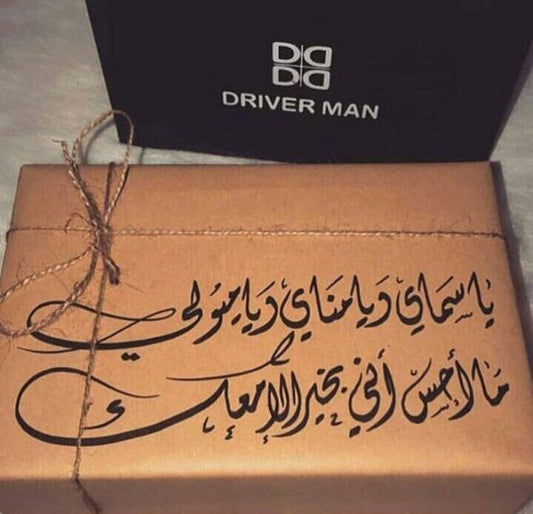 DRIVER MAN
ياسماي ويامناي وياميولي
ما أحس أني بخير إلا معك